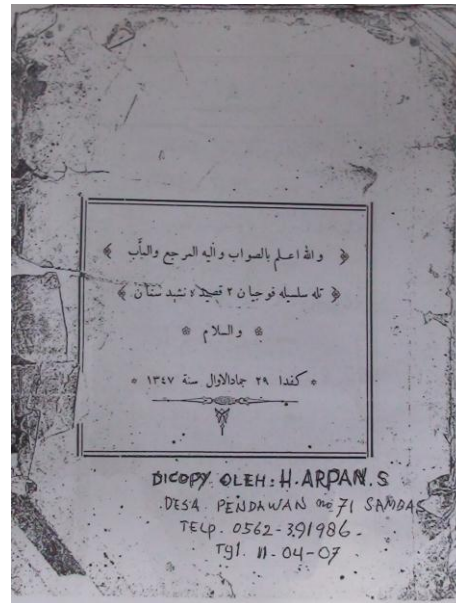 ﴿ والله اعلم بالصواب واليه المرجع والمآب ﴾
﴿ تله سلسيله فوجيان ٢ قصيده نشيد سنتان ﴾
* والسلام *
* كفدا ٢٩ جمادالاوال سنة ١٣٤٧ *
DICOPY OLEH: H. ARPAN. S
DESA PENDAWAN no 71 SAMBAS
TELP. 0562-391986.
Tgl. 11-04-07